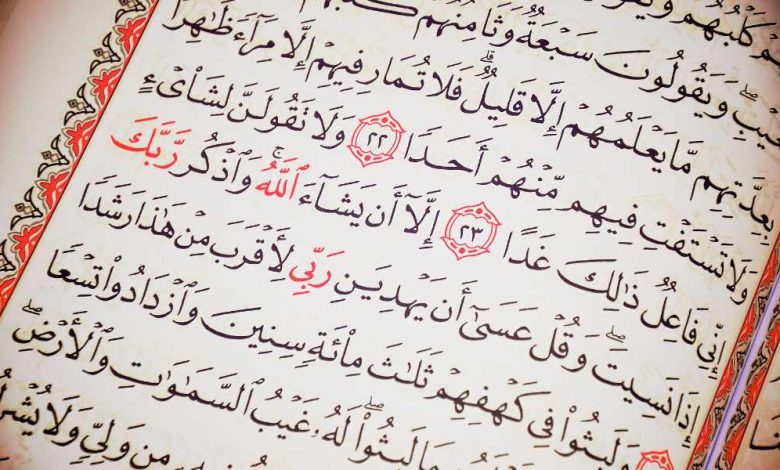 كَلْبُهُمْ
وَيَقُولُونَ سَبْعَةٌ وَثَامِنُهُمْ كَلْبُهُمْ
بِعِدَّتِهِم مَّا يَعْلَمُهُمْ إِلَّا قَلِيلٌ ۗ فَلَا تُمَارِ فِيهِمْ إِلَّا مِرَآءً ظَٰهِرًا
وَلَا تَسْتَفْتِ فِيهِم مِّنْهُمْ أَحَدًا ٢٢ وَلَا تَقُولَنَّ لِشَا۟ىْءٍ
إِنِّي فَاعِلٌ ذَٰلِكَ غَدًا ٢٣ إِلَّآ أَن يَشَآءَ ٱللَّهُ ۚ وَٱذْكُر رَّبَّكَ
إِذَا نَسِيتَ ۖ وَقُلْ عَسَىٰٓ أَن يَهْدِيَنِ رَبِّي لِأَقْرَبَ مِنْ هَٰذَا رَشَدًا
وَلَبِثُوا۟ فِي كَهْفِهِمْ ثَلَٰثَ مِا۟ئَةٍ سِنِينَ وَٱزْدَادُوا۟ تِسْعًا
لَبِثُوا۟ ۖ لَهُۥ غَيْبُ ٱلسَّمَٰوَٰتِ وَٱلْأَرْضِ ۖ
مِن وَلِيٍّ وَلَا